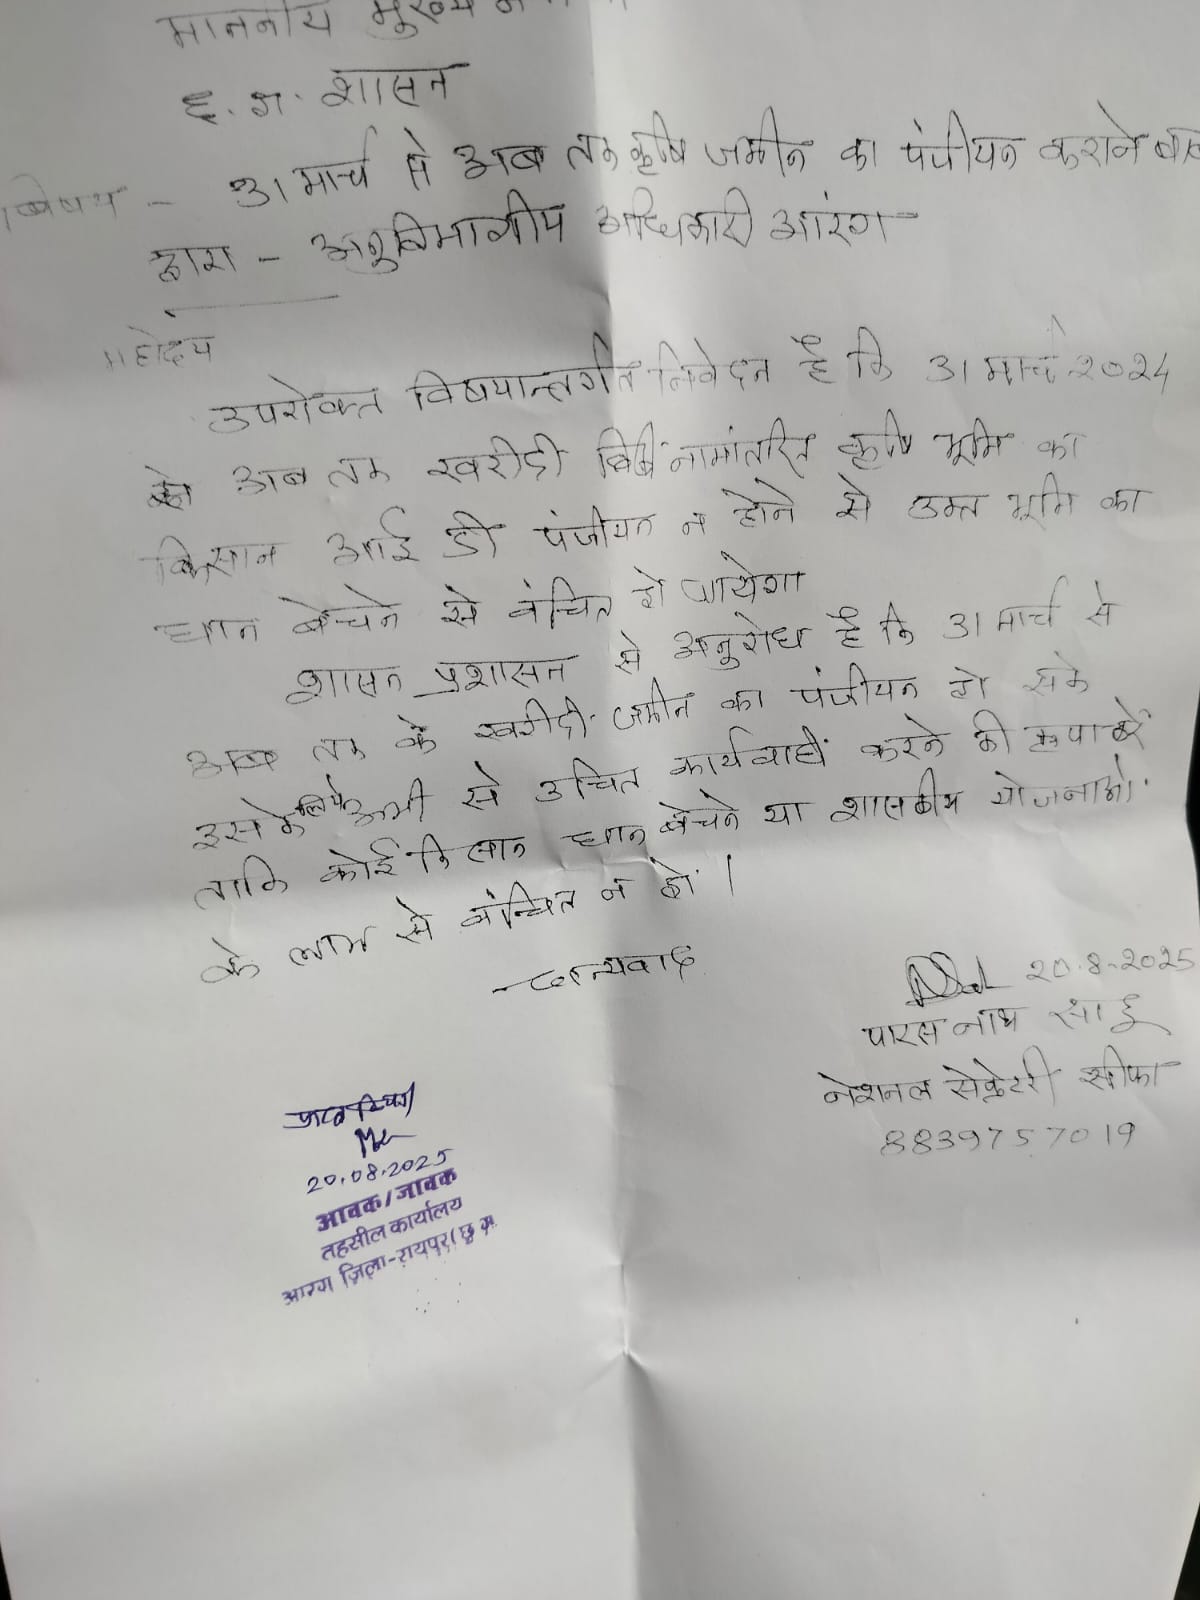 माननीय मुख्य
छ. ग. शासन
विषय - 31 मार्च से अब तक कृषि जमीन का पंजीयन कराने
द्वारा - अनुविभागीय अधिकारी आरंग
महोदय
उपरोक्त विषयान्तर्गत निवेदन है कि 31 मार्च 2024
से अब तक खरीदी नामांतरित कृषि भूमि का
किसान आई डी पंजीयन न होने से उक्त भूमि का
धान बेचने से वंचित हो जायेगा
शासन प्रशासन से अनुरोध है कि 31 मार्च से
अब तक के खरीदी जमीन का पंजीयन हो सके
इसके लिये अभी से उचित कार्यवाही करने की कृपा करें
ताकि कोई किसान धान बेचने या शासकीय योजनाओं
के लाभ से वंचित न हो ।
- धन्यवाद
20.8.2025
पारस नाथ साहू
नेशनल सेक्रेटरी सीफा
8839757019
20.08.2025
आवक/जावक
तहसील कार्यालय
आरंग जिला-रायपुर (छ.ग.